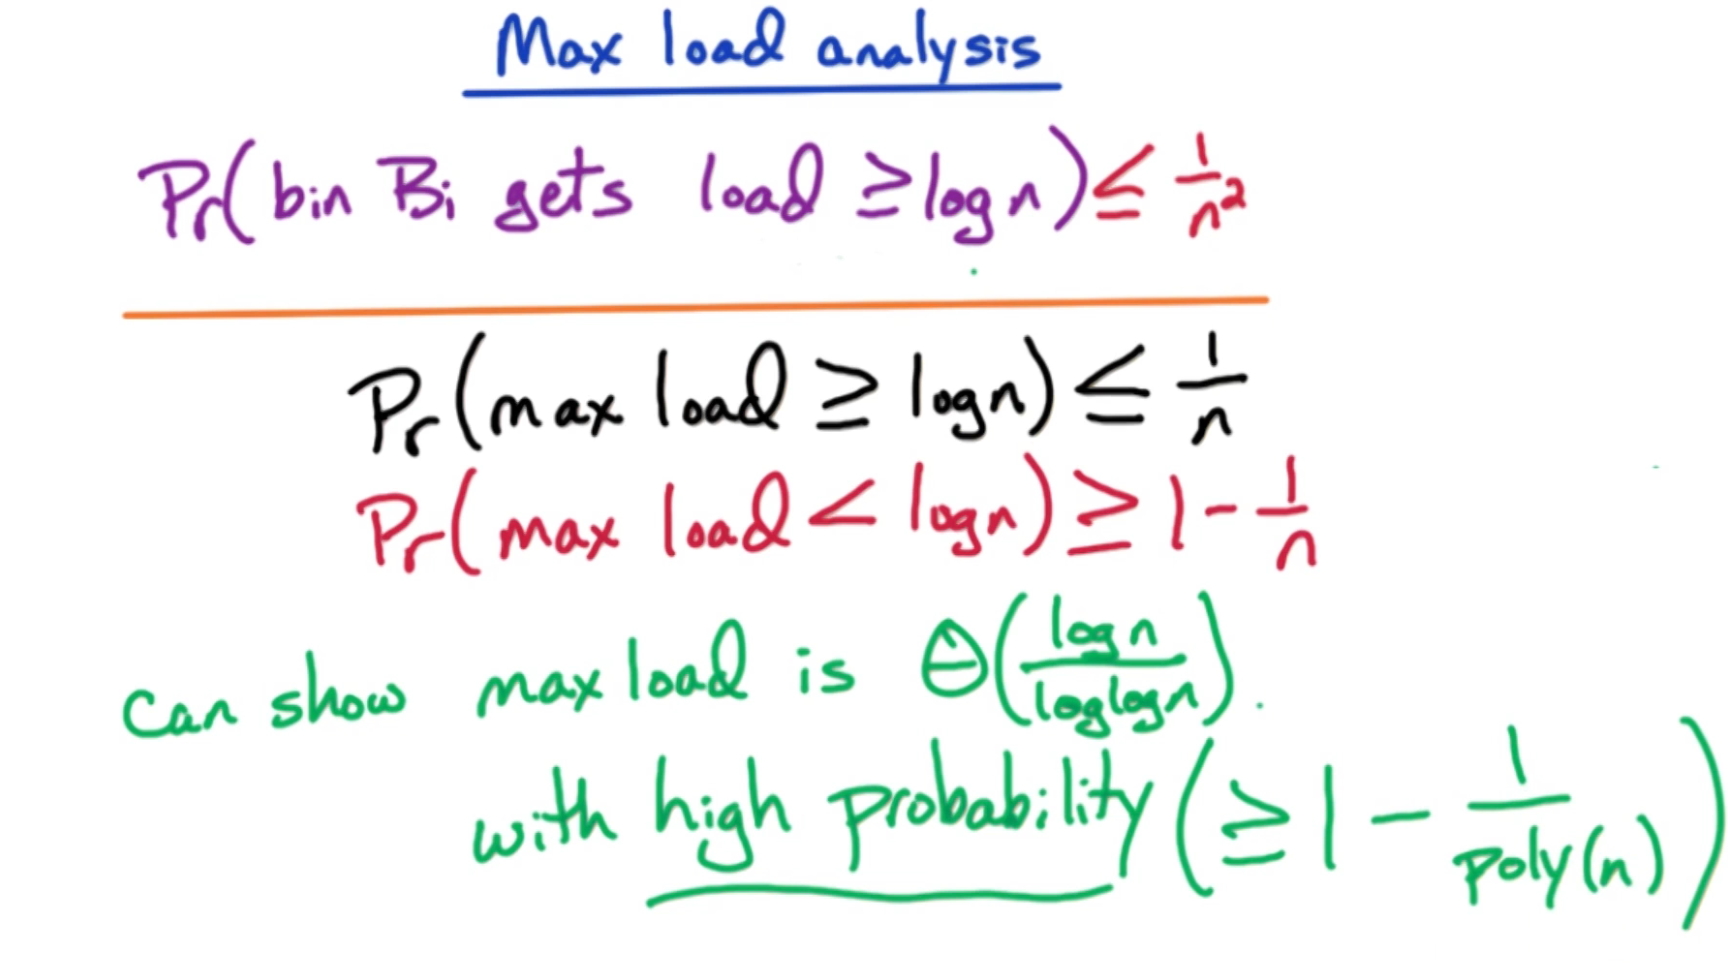 Max load analysis
Pr(bin Bi gets load ≥ log n) ≤ 1/n²
Pr(max load ≥ log n) ≤ 1/n
Pr(max load < log n) ≥ 1 - 1/n
Can show max load is Θ(log n / log log n).
with high probability (≥ 1 - 1/poly(n))